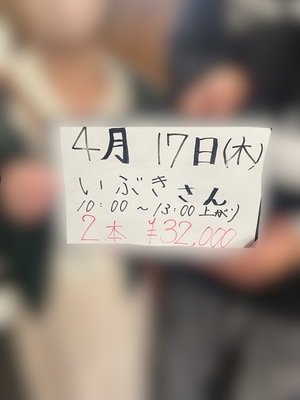 4月 17日(木)
いぶきさん
10:00～13:00上がり
2本 ¥32,000